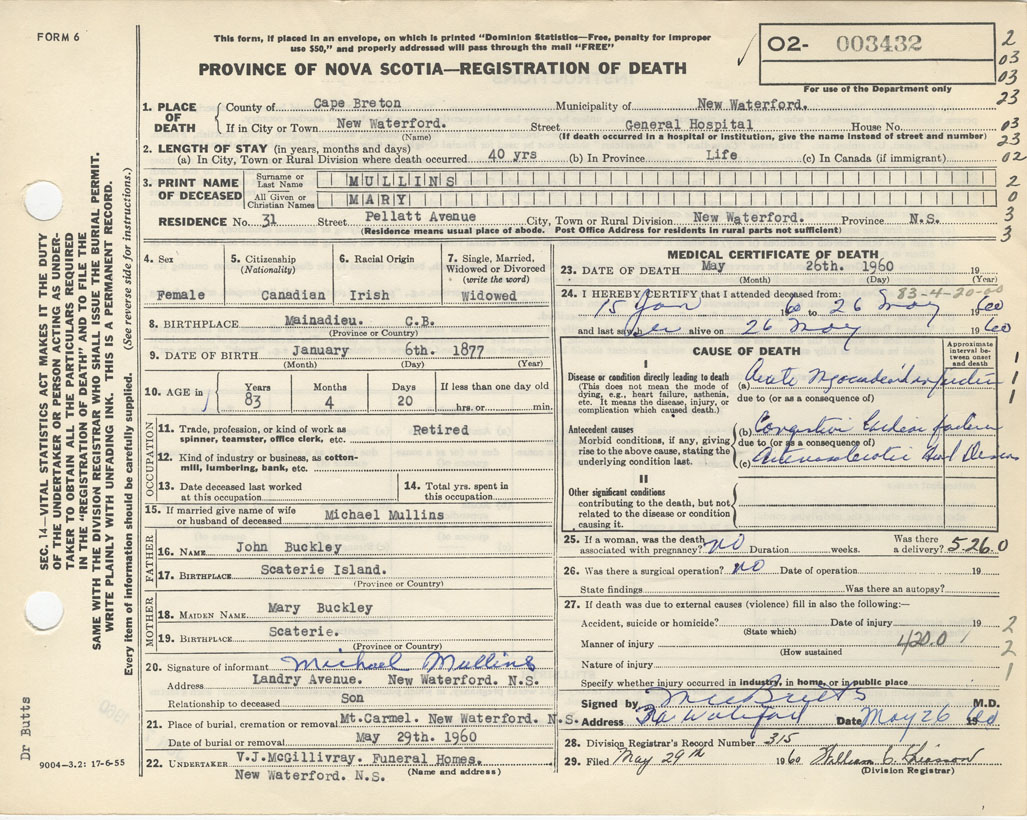 FORM 6
This form, if placed in an envelope, on which is printed "Dominion Statistics—Free, penalty for improper
use $50," and properly addressed will pass through the mail "FREE"
PROVINCE OF NOVA SCOTIA—REGISTRATION OF DEATH
O2- 003432
For use of the Department only
2
03
03
23
03
23
02
2
0
3
3
1. PLACE OF DEATH
County of Cape Breton Municipality of New Waterford.
If in City or Town New Waterford. Street General Hospital House No.
(Name) (If death occurred in a hospital or institution, give the name instead of street and number)
2. LENGTH OF STAY (in years, months and days)
(a) In City, Town or Rural Division where death occurred 40 yrs (b) In Province Life (c) In Canada (if immigrant)
3. PRINT NAME OF DECEASED
Surname or Last Name MULLINS
All Given or Christian Names MARY
RESIDENCE No. 31 Street Pellatt Avenue City, Town or Rural Division New Waterford. Province N.S.
(Residence means usual place of abode. Post Office Address for residents in rural parts not sufficient)
4. Sex
Female
5. Citizenship
(Nationality)
Canadian
6. Racial Origin
Irish
7. Single, Married,
Widowed or Divorced
(write the word)
Widowed
8. BIRTHPLACE Mainadieu. C.B.
(Province or Country)
9. DATE OF BIRTH January 6th. 1877
(Month) (Day) (Year)
10. AGE in
Years Months Days If less than one day old
83 4 20 hrs. or min.
OCCUPATION
11. Trade, profession, or kind of work as Retired
spinner, teamster, office clerk, etc.
12. Kind of industry or business, as cotton-
mill, lumbering, bank, etc.
13. Date deceased last worked
at this occupation
14. Total yrs. spent in
this occupation
15. If married give name of wife
or husband of deceased Michael Mullins
FATHER
16. NAME John Buckley
17. BIRTHPLACE Scaterie Island.
(Province or Country)
MOTHER
18. MAIDEN NAME Mary Buckley
19. BIRTHPLACE Scaterie.
(Province or Country)
20. Signature of informant Michael Mullins
Address Landry Avenue. New Waterford. N.S.
Relationship to deceased Son
21. Place of burial, cremation or removal Mt.Carmel. New Waterford. N.S.
Date of burial or removal May 29th. 1960
22. UNDERTAKER V.J.McGillivray. Funeral Homes.
New Waterford. N.S. (Name and address)
MEDICAL CERTIFICATE OF DEATH
23. DATE OF DEATH May 26th. 1960 19
(Month) (Day) (Year)
83-4-20-00
24. I HEREBY CERTIFY that I attended deceased from:
15 Jan 60 to 26 May 1960
and last saw her alive on 26 May 1960
CAUSE OF DEATH
Approximate
interval be-
tween onset
and death
I
Disease or condition directly leading to death
(This does not mean the mode of
dying, e.g., heart failure, asthenia,
etc. It means the disease, injury, or
complication which caused death.)
(a) Acute Myocardial Infarction
due to (or as a consequence of)
Antecedent causes
Morbid conditions, if any, giving
rise to the above cause, stating the
underlying condition last.
(b) Congestive Cardiac failure
due to (or as a consequence of)
(c) Arteriosclerotic Heart Disease
II
Other significant conditions
contributing to the death, but not
related to the disease or condition
causing it.
1
1
1
25. If a woman, was the death
associated with pregnancy? no Duration weeks.
Was there
a delivery?
5-26.0
26. Was there a surgical operation? no Date of operation 19
State findings Was there an autopsy?
27. If death was due to external causes (violence) fill in also the following:—
Accident, suicide or homicide? Date of injury 19
(State which)
Manner of injury 420.0
(How sustained)
Nature of injury
Specify whether injury occurred in industry, in home, or in public place
2
2
1
Signed by M.D.
Address Date May 26 1960
28. Division Registrar's Record Number 315
29. Filed May 29th 1960 William C.
(Division Registrar)
SEC. 14—VITAL STATISTICS ACT MAKES IT THE DUTY
OF THE UNDERTAKER OR PERSON ACTING AS UNDER-
TAKER TO OBTAIN ALL THE PARTICULARS REQUIRED
IN THE "REGISTRATION OF DEATH" AND TO FILE THE
SAME WITH THE DIVISION REGISTRAR WHO SHALL ISSUE THE BURIAL PERMIT.
WRITE PLAINLY WITH UNFADING INK. THIS IS A PERMANENT RECORD.
Every item of information should be carefully supplied. (See reverse side for instructions.)
Dr Butts
9004-3.2: 17-6-55